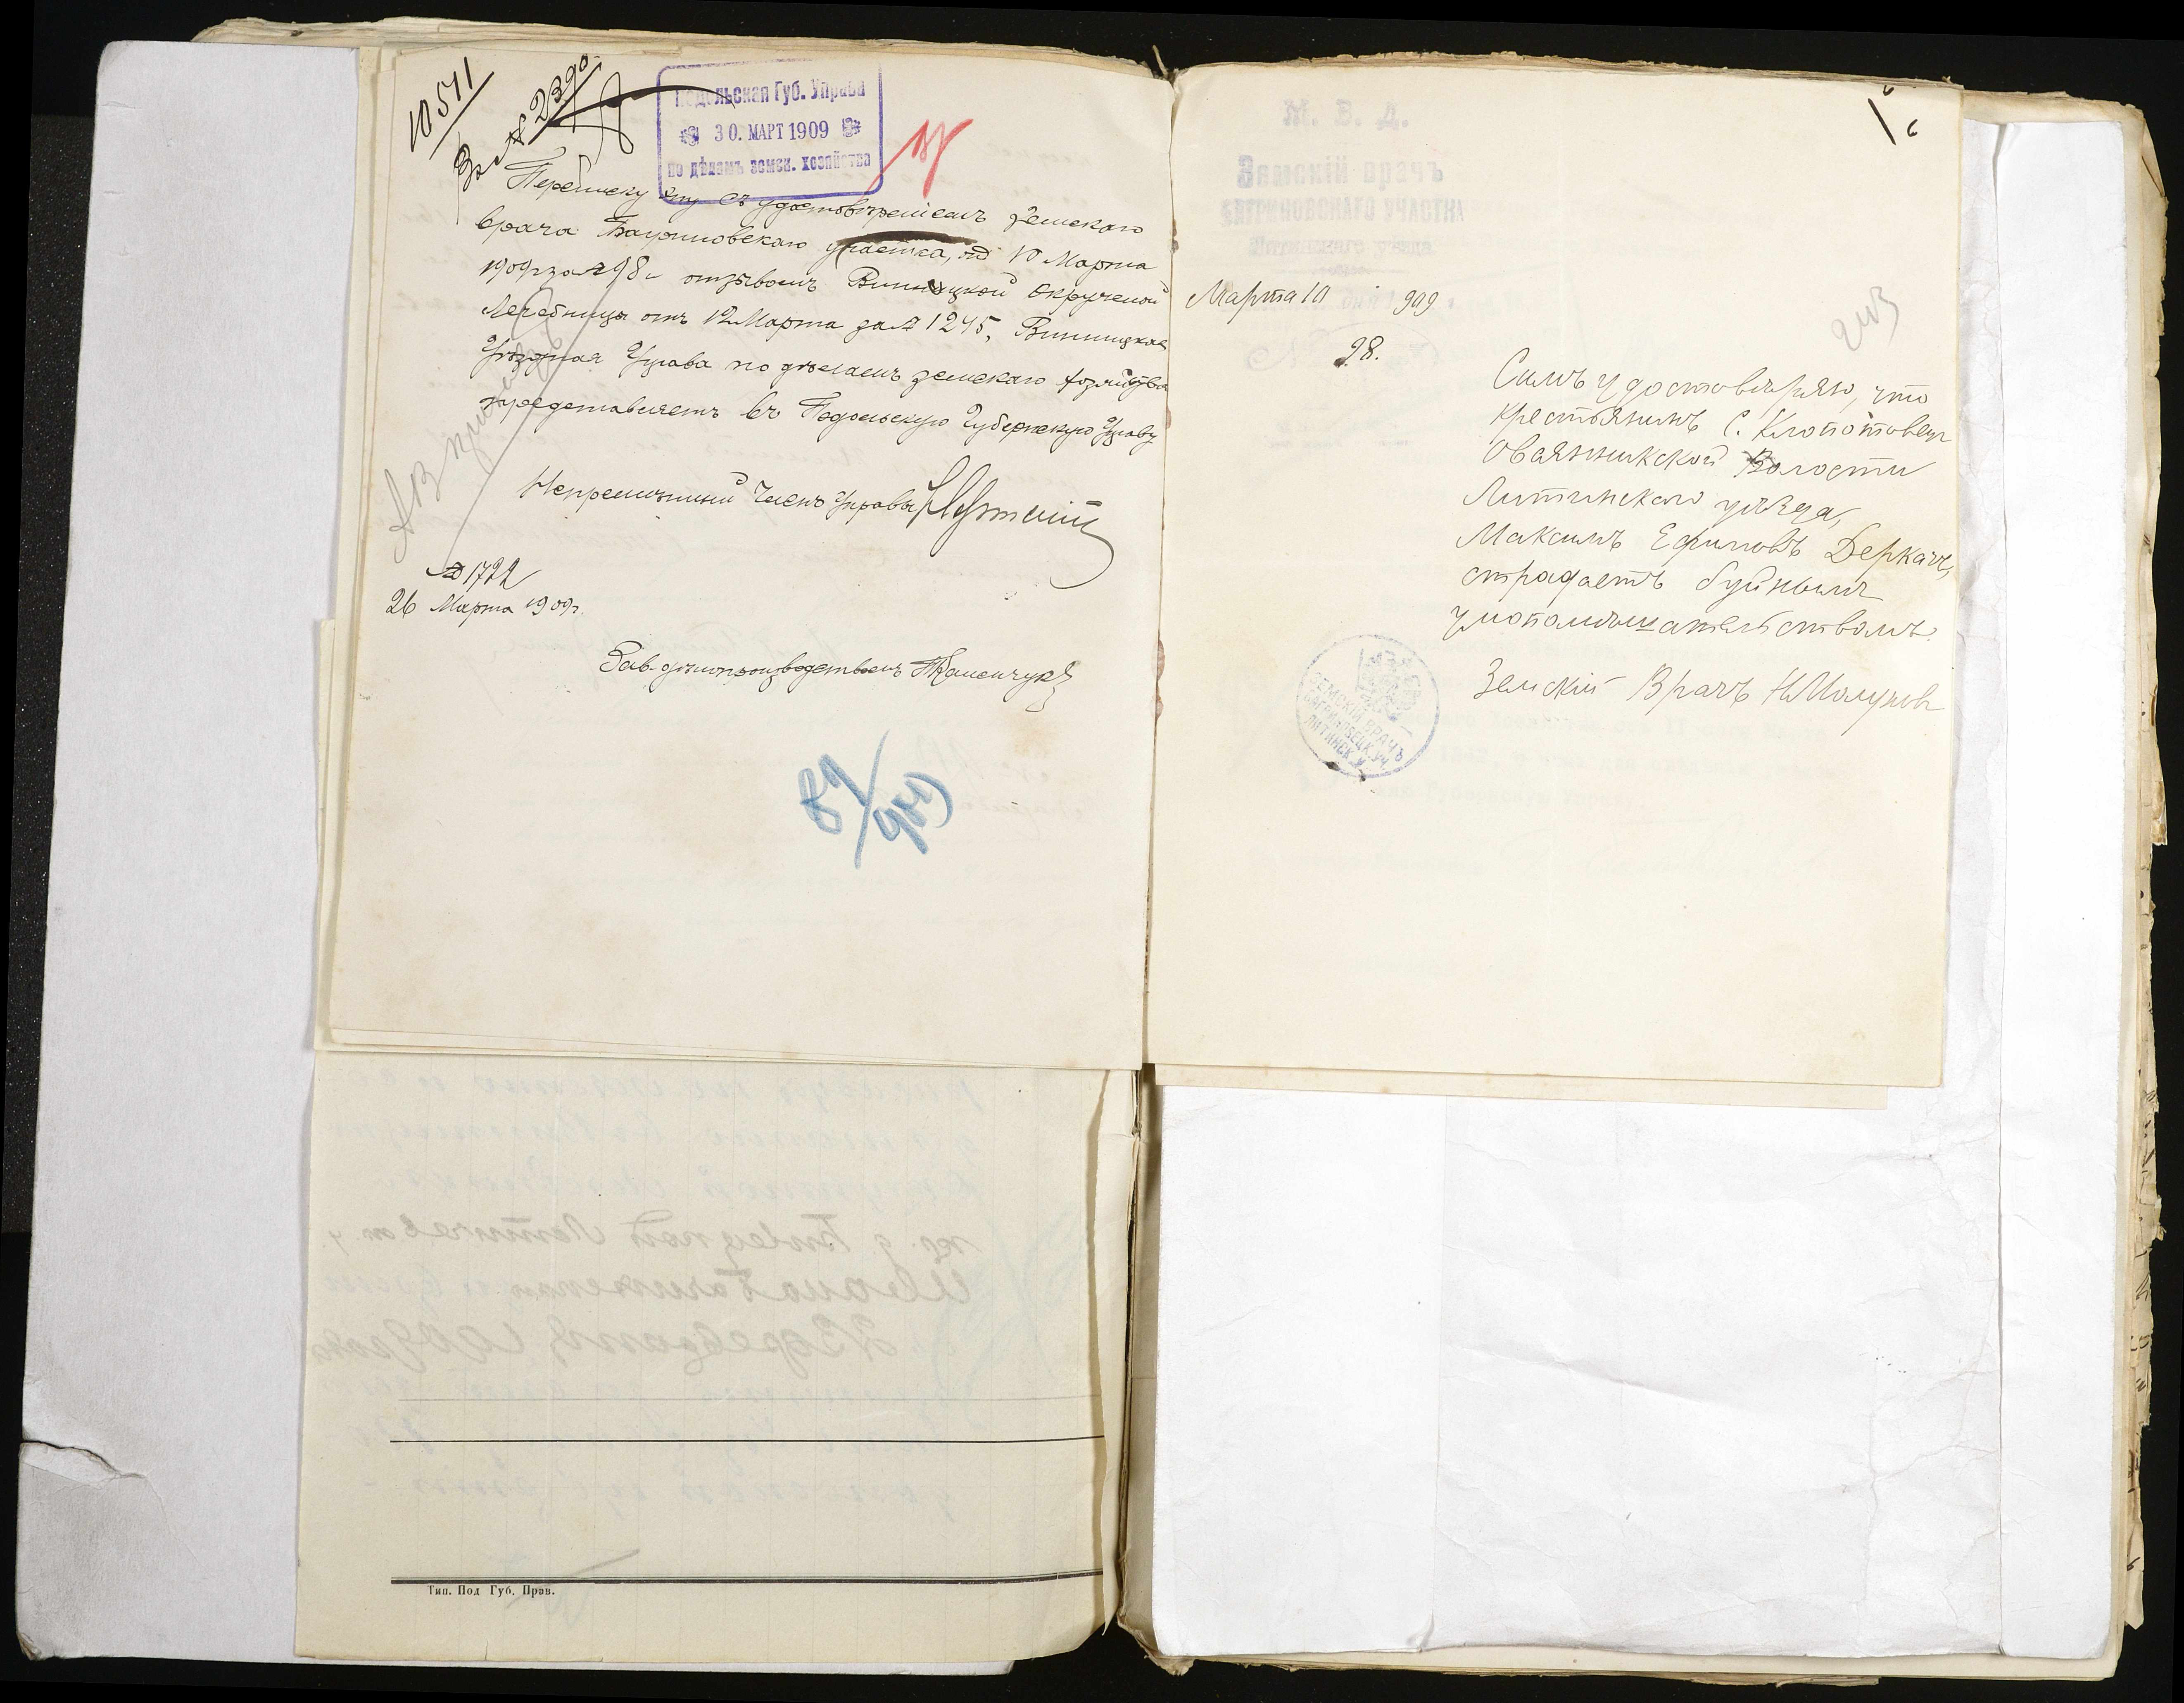 10511
Подольская Губ. Управа
30. МАРТ 1909
по дѣламъ земск. хозяйства
Переписку эту съ удостовѣреніемъ земскаго
врача Багриновскаго участка, отъ 10 Марта
1909 г за № 98 и отзывомъ Винницкой Окружной
Лечебницы отъ 12 Марта за № 1245, Винницкая
Уѣздная Управа по дѣламъ земскаго хозяйства
представляетъ въ Подольскую Губернскую Управу
Непремѣнный Членъ Управы
№ 1722
26 Марта 1909 г.
Зав. дѣлопроизводствомъ
Тип. Под Губ. Прав.
М. В. Д.
Земскій врачъ
БАГРИНОВСКАГО УЧАСТКА
Литинскаго уѣзда
Марта 10 дня 1909
98.
Симъ удостовѣряю, что
крестьянинъ С. Клопотовецъ
Овсянникской Волости
Литинскаго уѣзда,
Максимъ Ефимовъ Деркачъ,
страдаетъ буйнымъ
умопомѣшательствомъ.
Земскій Врачъ
ЗЕМСКІЙ ВРАЧЪ
БАГРИНОВЕЦК. УЧ.
ЛИТИНСК. У.
6